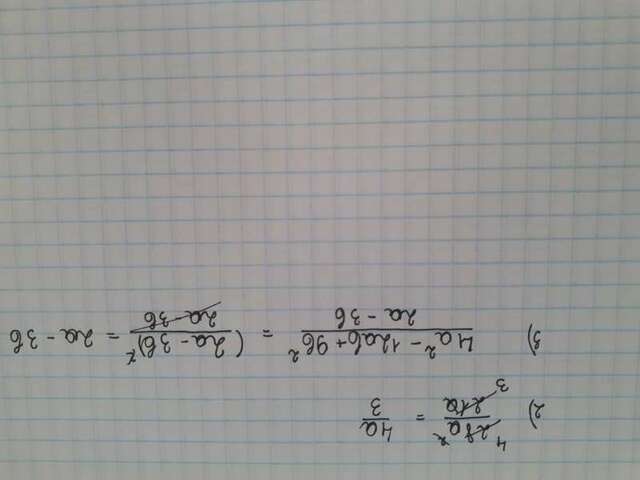 2) 28a²/21a = 4a/3
3) 4a² - 12ab + 9b² / 2a - 3b = (2a - 3b)² / 2a - 3b = 2a - 3b